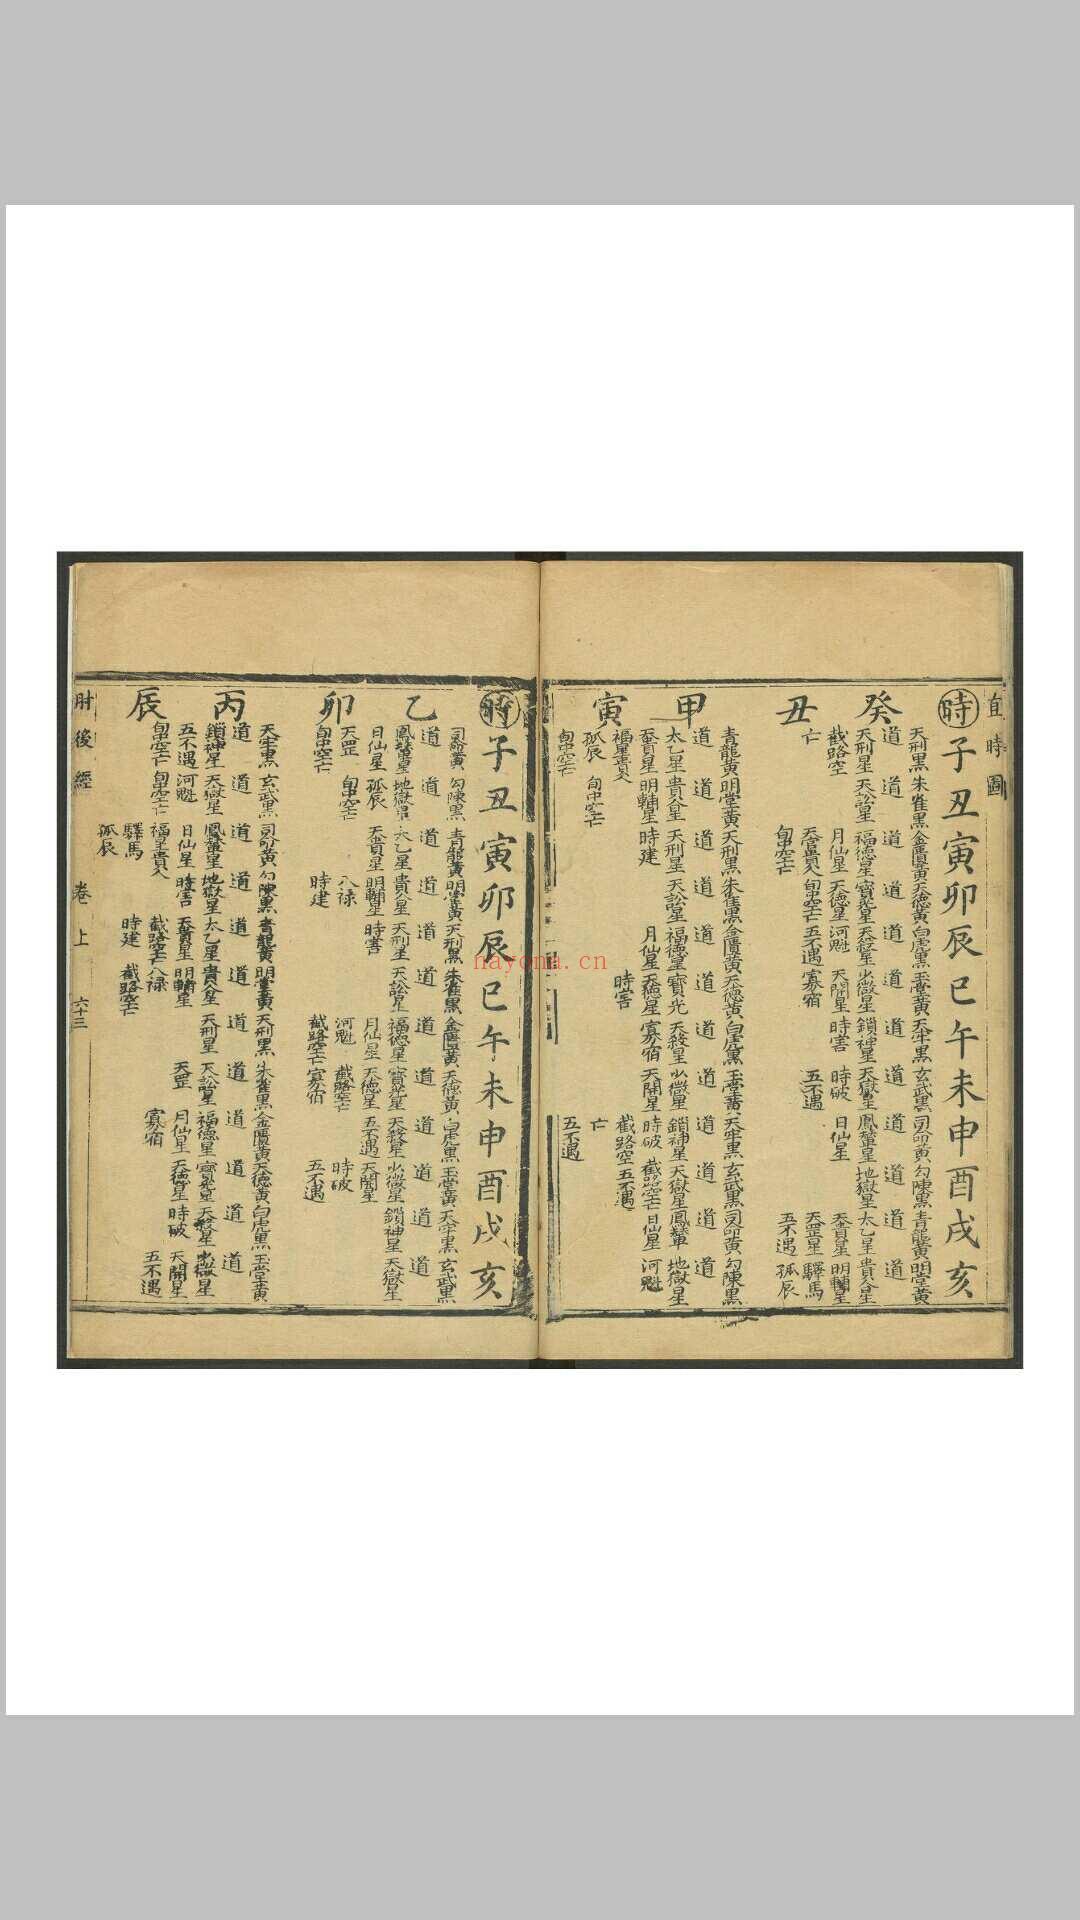 直時圖
時子丑寅卯辰巳午未申酉戌亥
癸丑
天刑黑朱雀黑金匱黃天德黃白虎黑玉堂黃天牢黑玄武黑司命黃勾陳黑青龍黃明堂黃
道道道道道道道道道道道道
天刑星天訟星福德星寶光星天殺星少微星鎖神星天獄星鳳輦星地獄星太乙星貴人星
截路空月仙星天德星河魁天開星時害時破日仙星天貴星明輔星
亡天富貴人旬中空亡五不遇寡宿五不遇天罡星驛馬
旬中空亡五不遇孤辰
甲寅
青龍黃明堂黃天刑黑朱雀黑金匱黃天德黃白虎黑玉堂黃天牢黑玄武黑司命黃勾陳黑
道道道道道道道道道道道道
太乙星貴人星天刑星天訟星福德星寶光天殺星少微星鎖神星天獄星鳳輦地獄星
天貴星明輔星時建月仙星天德星寡宿天開星時破截路空亡日仙星河魁
福星貴人時害截路空五不遇
孤辰旬中空亡亡
旬中空亡五不遇
時子丑寅卯辰巳午未申酉戌亥
乙卯
司命黃勾陳黑青龍黃明堂黃天刑黑朱雀黑金匱黃天德黃白虎黑玉堂黃天牢黑玄武黑
道道道道道道道道道道道道
鳳輦星地獄星太乙星貴人星天刑星天訟星福德星寶光星天殺星少微星鎖神星天獄星
日仙星孤辰天貴星明輔星時害月仙星天德星五不遇天開星
天罡旬中空亡八祿河魁截路空亡時破
旬中空亡時建截路空亡寡宿五不遇
丙辰
天牢黑玄武黑司命黃勾陳黑青龍黃明堂黃天刑黑朱雀黑金匱黃天德黃白虎黑玉堂黃
道道道道道道道道道道道道
鎖神星天獄星鳳輦星地獄星太乙星貴人星天刑星天訟星福德星寶光星天殺星少微星
五不遇河魁日仙星時害天貴星明輔星天罡月仙星天德星時破天開星
旬中空亡旬中空亡福星貴人截路空亡八祿寡宿五不遇
驛馬時建截路空亡
孤辰
肘後經 卷上 六十三
nayona.cn